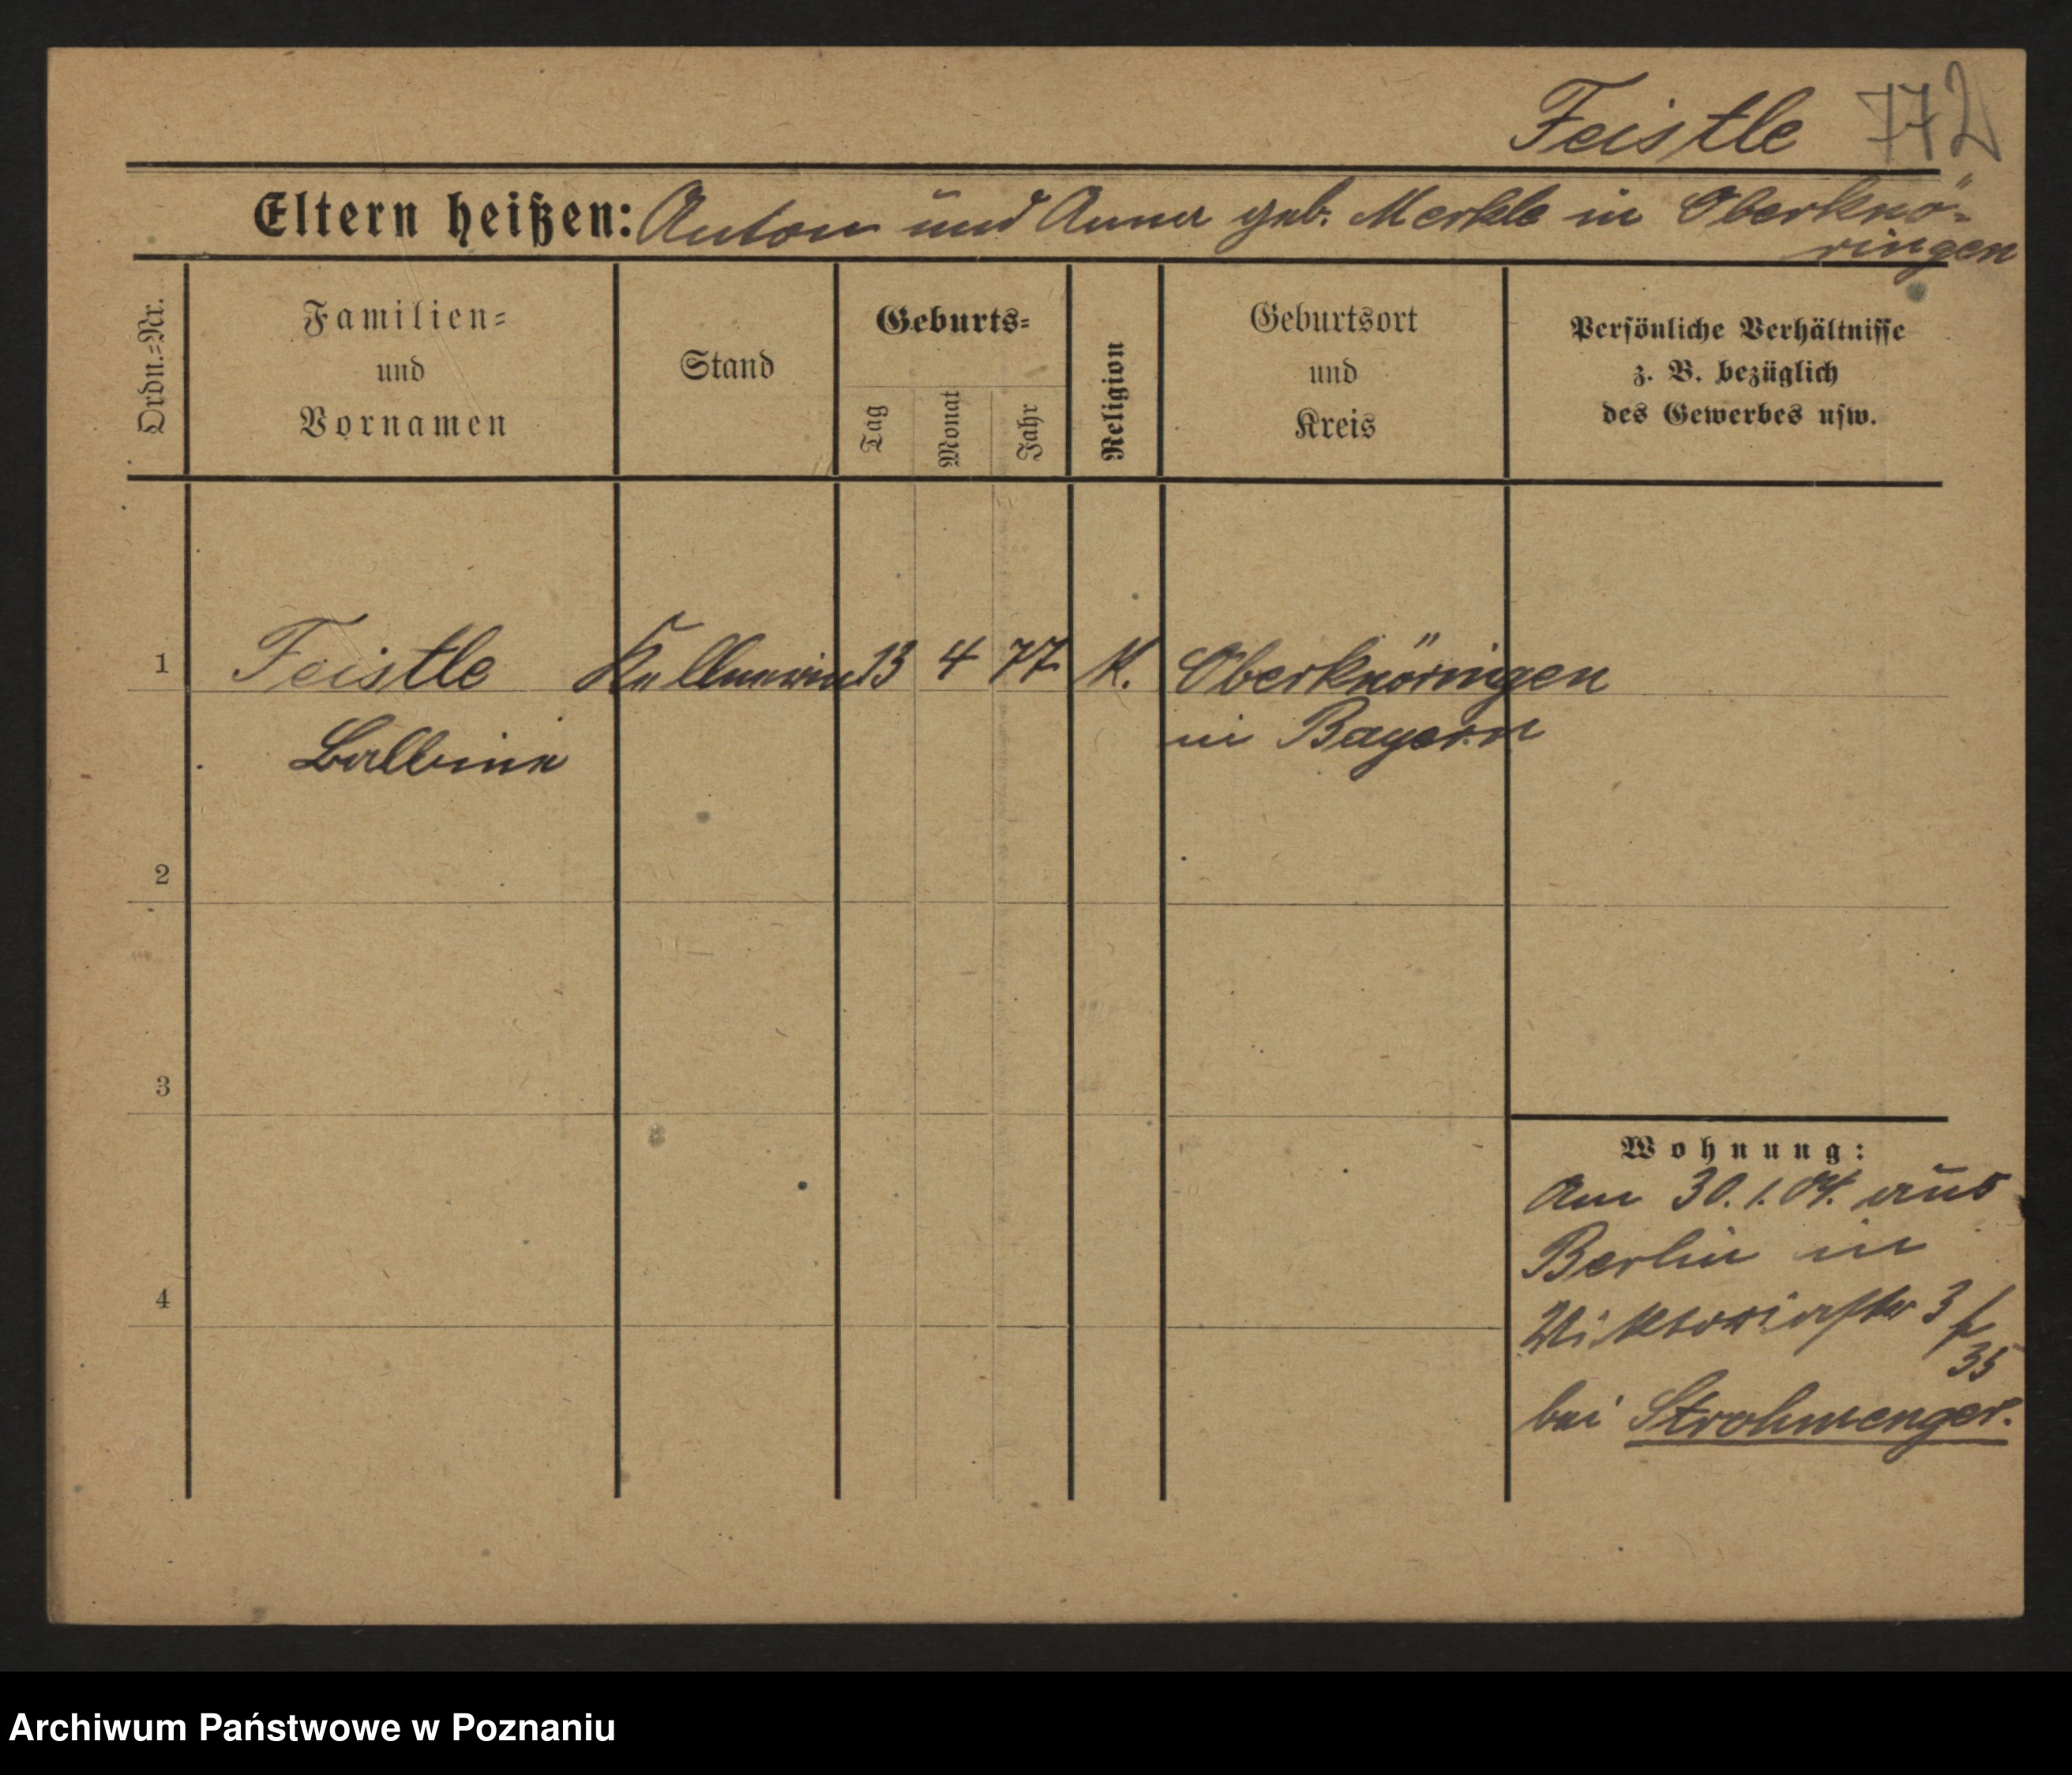 Feistle 772
Eltern heißen: Anton und Anna geb. Merkle in Oberknö-
ringen
Ordn.=Nr.
Familien=
und
Vornamen
Stand
Geburts=
Tag
Monat
Jahr
Religion
Geburtsort
und
Kreis
Persönliche Verhältnisse
z. B. bezüglich
des Gewerbes usw.
1 Feistle Kellnerin 13 4 77 K. Oberknöringen
Balbina in Bayern
2
3
4
Wohnung:
Am 30.1.04. aus
Berlin in
Viktoriastr 3
35
bei Strohmenger.
Archiwum Państwowe w Poznaniu